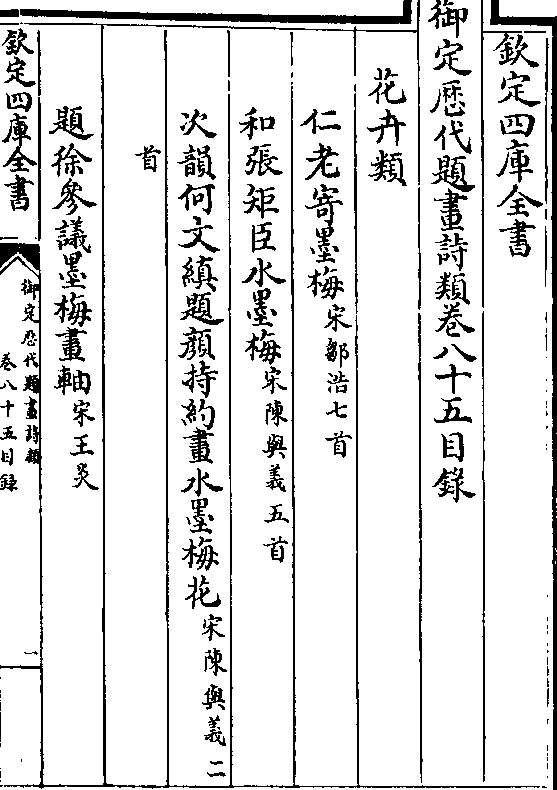 欽定四庫全書
御定歴代題畫詩類卷八十五目錄
花卉類
仁老寄墨梅宋鄒浩七首
和張矩臣水墨梅宋陳與義五首
次韻何文縝題顔持約畫水墨梅花宋陳與義二
首
題徐參議墨梅畫軸宋王炎
欽定四庫全書
御定歴代題畫詩類
卷八十五目錄
一